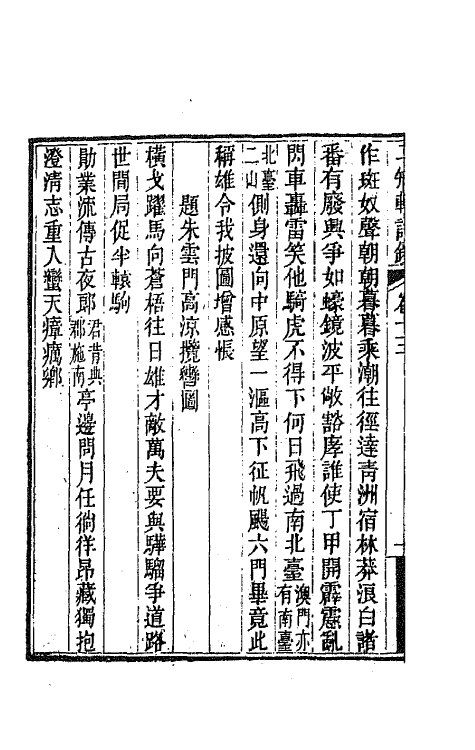 二知軒詩鈔 卷十三
作斑奴聲朝朝暮暮乘潮往徑達靑洲宿林莽浪白諸
番有廢興爭如蠔鏡波平敞豁庨誰使丁甲開霹靂亂
閃車轟雷笑他騎虎不得下何日飛過南北臺澳門亦有南臺
北臺二山側身還向中原望一漚高下征帆颺六門畢竟此
稱雄令我披圖增感悵
題朱雲門高涼攬轡圖
橫戈躍馬向蒼梧往日雄才敵萬夫要與驊騮爭道路
世間局促半轅駒
勛業流傳古夜郎君昔典郡施南亭邊問月任徜徉昂藏獨抱
澄清志重入蠻天瘴癘鄉